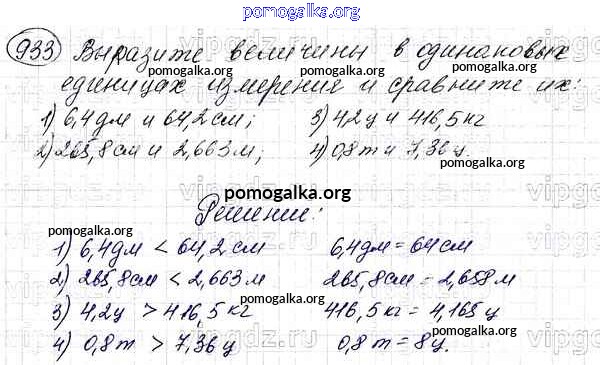 pomogalka.org
933 Выразите величины в одинаковых
pomogalka.org pomogalka.org
единицах измерение и сравните их:
1) 6,4дм и 64,2см; 3) 4,2ц и 416,5кг
pomogalka.org pomogalka.org
2) 265,8см и 2,663м; 4) 0,8т и 7,36ц
pomogalka.org
Решение:
1) 6,4дм < 64,2см 6,4дм = 64см
pomogalka.org pomogalka.org
2) 265,8см < 2,663м 265,8см = 2,658м
3) 4,2ц > 416,5кг 416,5кг = 4,165ц
pomogalka.org pomogalka.org
4) 0,8т > 7,36ц 0,8т = 8ц.